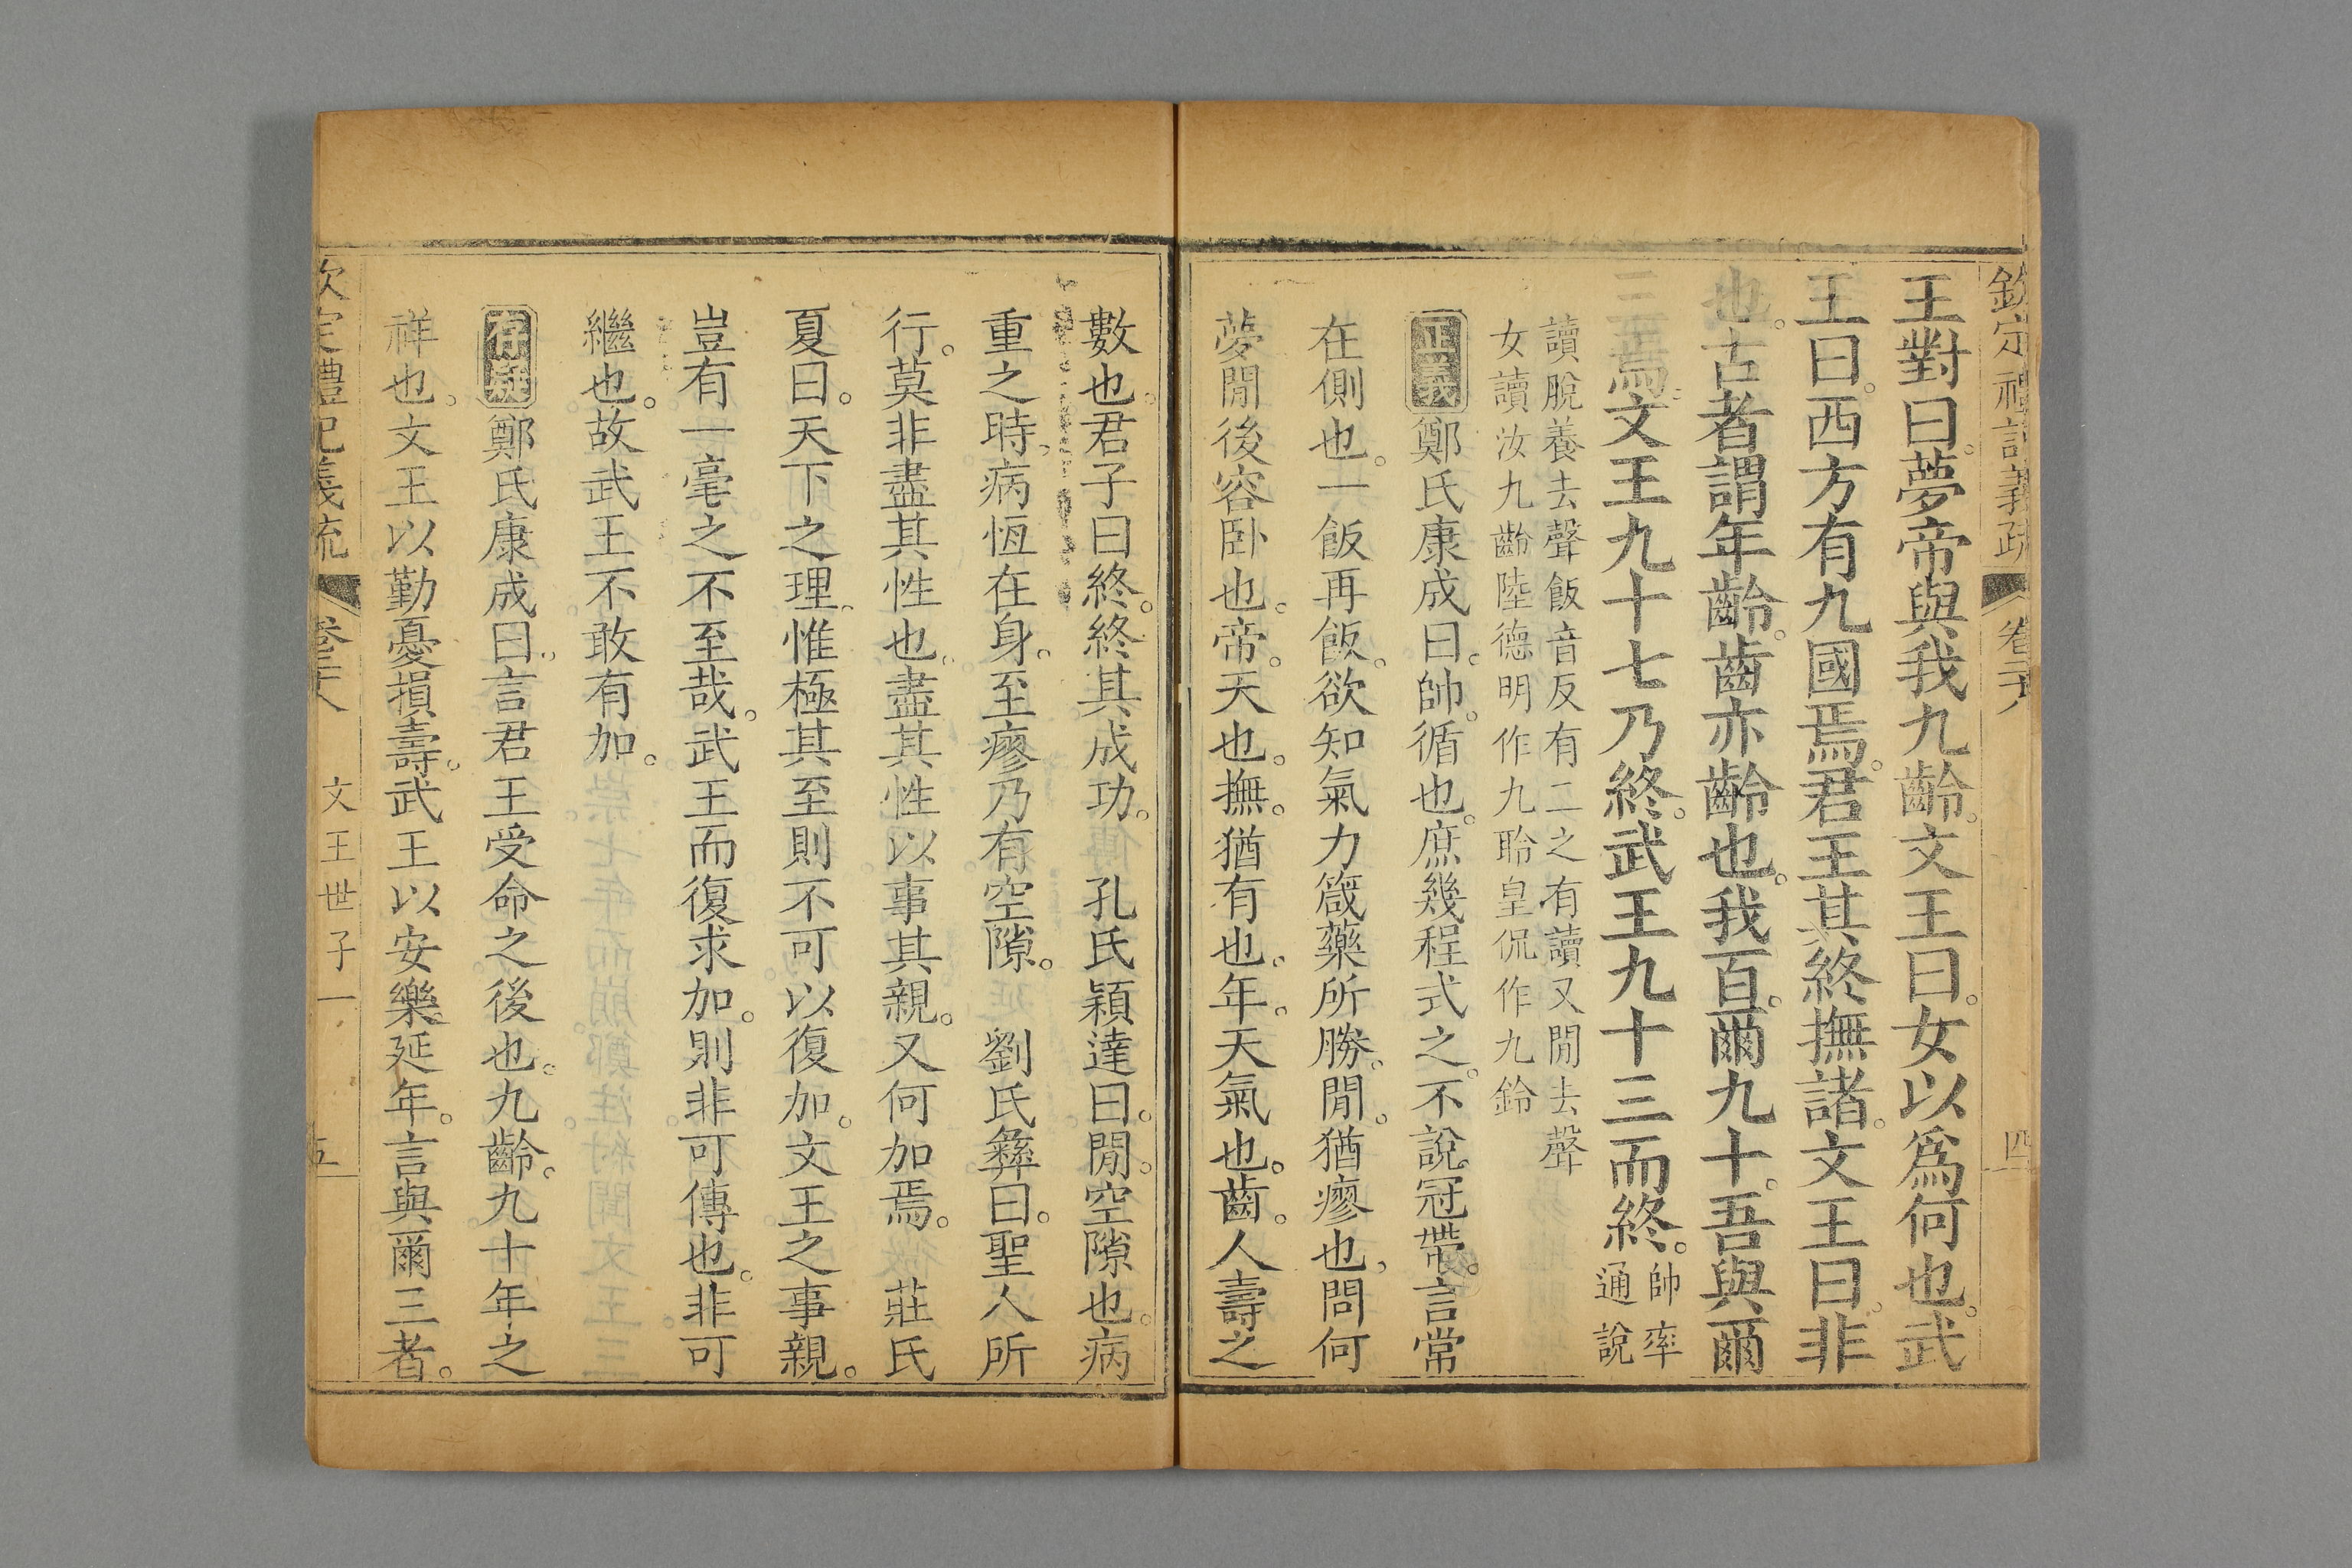 欽定禮記義疏 卷二十八 四
王對曰。夢帝與我九齡。文王曰。女以爲何也。武
王曰。西方有九國焉。君王其終撫諸。文王曰。非
也。古者謂年齡。齒亦齡也。我百。爾九十。吾與爾
三焉。文王九十七乃終。武王九十三而終。帥率
通說
讀脫養去聲飯音反有二之有讀又閒去聲
女讀汝九齡陸德明作九聆皇侃作九鈴
正義鄭氏康成曰。帥。循也。庶幾程式之。不說冠帶。言常
在側也。一飯再飯。欲知氣力箴藥所勝。閒。猶瘳也。問何
夢。閒後容臥也。帝。天也。撫。猶有也。年。天氣也。齒。人壽之
數也。君子曰終。終其成功。 孔氏穎達曰。閒。空隙也。病
重之時。病恆在身。至瘳乃有空隙。 劉氏彝曰。聖人所
行。莫非盡其性也。盡其性以事其親。又何加焉。 莊氏
夏曰。天下之理。惟極其至則不可以復加。文王之事親。
豈有一毫之不至哉。武王而復求加。則非可傳也。非可
繼也。故武王不敢有加。
存疑鄭氏康成曰。言君王受命之後也。九齡。九十年之
祥也。文王以勤憂損壽。武王以安樂延年。言與爾三者。
欽定禮記義疏 卷二十八 文王世子一 五